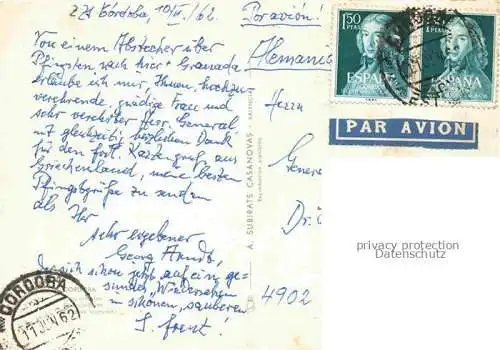 z.Zt. Córdoba, 10/VI./62.
Por avión!
Von einem Abstecher über
Pfingsten nach hier + Granada
erlaube ich mir, Ihnen, hochzu-
verehrende, gnädige Frau und
sehr verehrter Herr General
mit gleichzeitig herzlichem Dank
für den fortl. Kartengruß aus
Griechenland, meine besten
Pfingstgrüße zu senden
als Ihr
sehr ergebener
Georg
schon jetzt auf ein ge-
sundes Wiedersehen
im schönen, sauberen
Alemania
Herrn
Genera
Dr.
4902
1,50
PTAS
ESPAÑA
1
PTAS
ESPAÑA
PAR AVION
A. SUBIRATS CASANOVAS
privacy protection
Datenschutz
CORDOBA
62